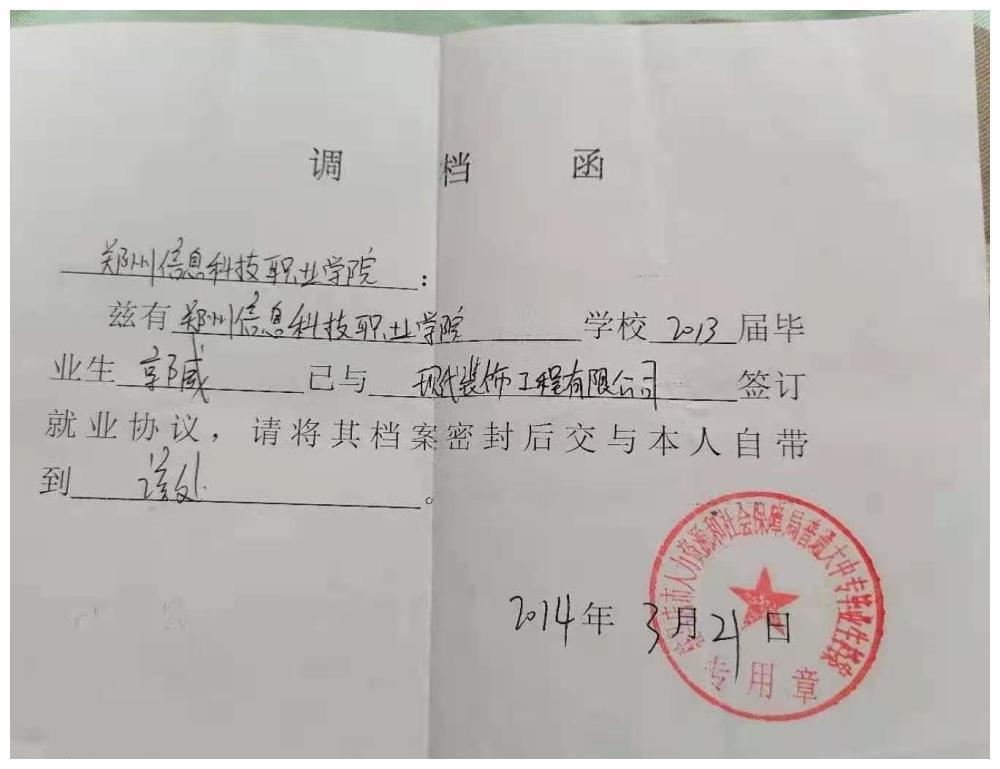 调档函
郑州信息科技职业学院：
兹有郑州信息科技职业学院学校2013届毕
业生郭威已与现代装饰工程有限公司签订
就业协议，请将其档案密封后交与本人自带
到该处。
市人力资源和社会保障局普通大中专毕业生档案
专用章
2014年3月21日